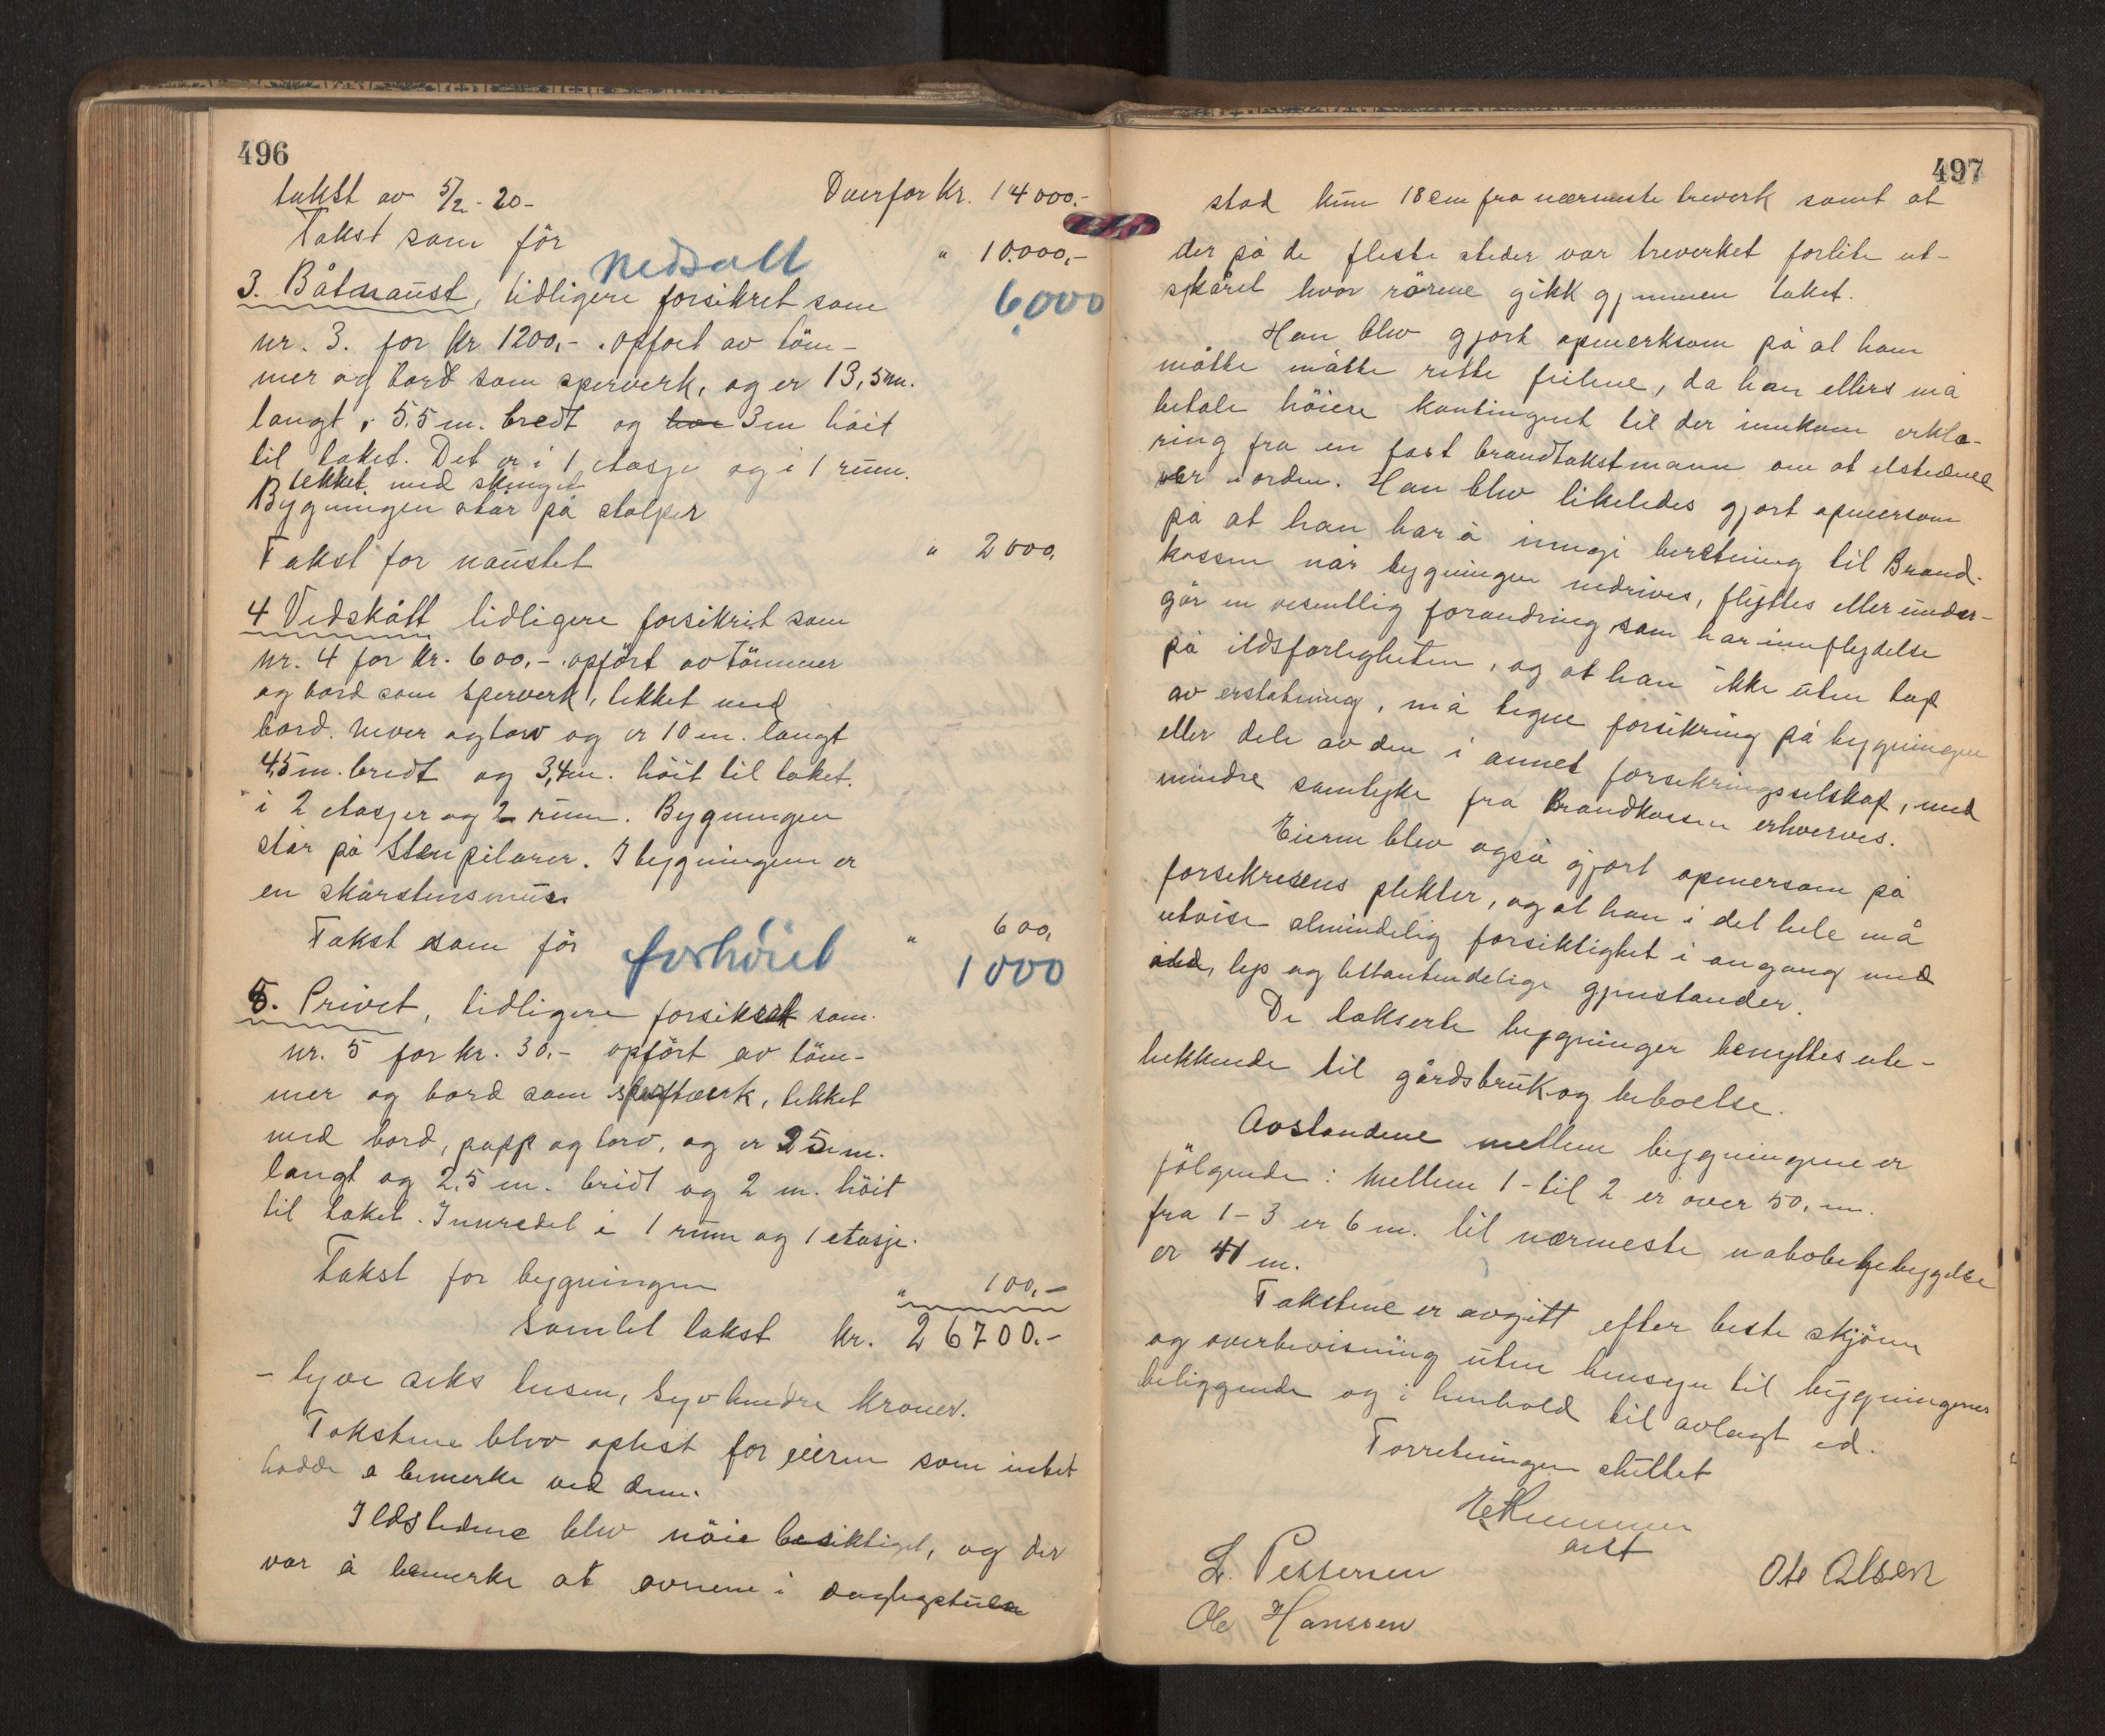 496
takst av 5/2 - 20 - Overfor Kr. 14000.-
Takst som för " 10.000,-
nedsatt 6,000
3. Båtnaust, tidligere forsikret som
nr. 3. for kr 1200,- . opfört av töm-
mer og bord som sperverk, og er 13,5m.
langt, 5,5 m. bredt og 3m höit
til taket. Det er i 1 etasje og i 1 rum.
tekket med skingel
Bygningen står på stolper
Takst for naustet " 2000,
4 Vedskått tidligere forsikret som
nr. 4 for kr. 600,- . opfört av tömmer
og bord som sperverk, tekket med
bord. never og torv og er 10 m. langt
4,5 m. bredt og 3,4m. höit til taket.
i 2 etasjer og 2 rum. Bygningen
står på Stenpilarer. I bygningen er
en skårstensmur.
Takst som för " 600,
forhöiet 1000
5. Privet, tidligere forsikret som
nr. 5 for kr. 30,- opfört av töm-
mer og bord som , tekket
med bord, papp og torv, og er 25m.
langt og 2,5 m. bridt og 2 m. höit
til taket. Innredet i 1 rum og 1 etasje.
Takst for bygningen " 100,-
Samlet takst kr. 26700.-
- tyve seks tusen, syv hundre kroner.
Takstene blev oplest for eieren som intet
hadde a bemerke ved dem.
Ildstedene blev nöie besiktiget, og der
var å bemerke at ovnene i dagligstuen
497
stod kun 18 cm fra nærmeste treverk samt at
der på de fleste steder var treverket forlite ut-
skåret hvor rörene gikk gjennem taket.
Han blev gjort opmerksom på at han
måtte måtte rette feilene, da han ellers må
betale höiere kontingent til der innkom erklæ-
ring fra en fast brandtakstmann om at ilstedene
var i orden. Han blev likeledes gjort opmersom
på at han har å inngi beretning til Brand-
kassen når bygningen nedrives, flyttes eller under-
går en vesentlig forandring som har innflydelse
på ildsfarligheten, og at han ikke uten tap
av erstatning, må tegne forsikring på bygningen
eller dele av den i annet forsekringsselskap, med
mindre samtykke fra Brandkassen erhverves.
Eieren blev også gjort opmersom på
forsekredens plikter, og at han i det hele må
utvise almindelig forsiktighet i omgang med
ild, lys og lettantendelige gjenstander.
De takserte bygninger benyttes ute-
lukkende til gårdsbruk og beboelse.
Avstandene mellem bygningene er
fölgende: Mellem 1 - til 2 er over 50, m.
fra 1 - 3 er 6 m. til nærmeste nabobebygelse
er 41 m.
Takstene er avgitt efter beste skjönn
og overbevisning uten hensyn til bygningenes
beliggende og i henhold til avlagt ed.
Forretningen sluttet
L. Pettersen Ole Olsen
Ole Hanssen